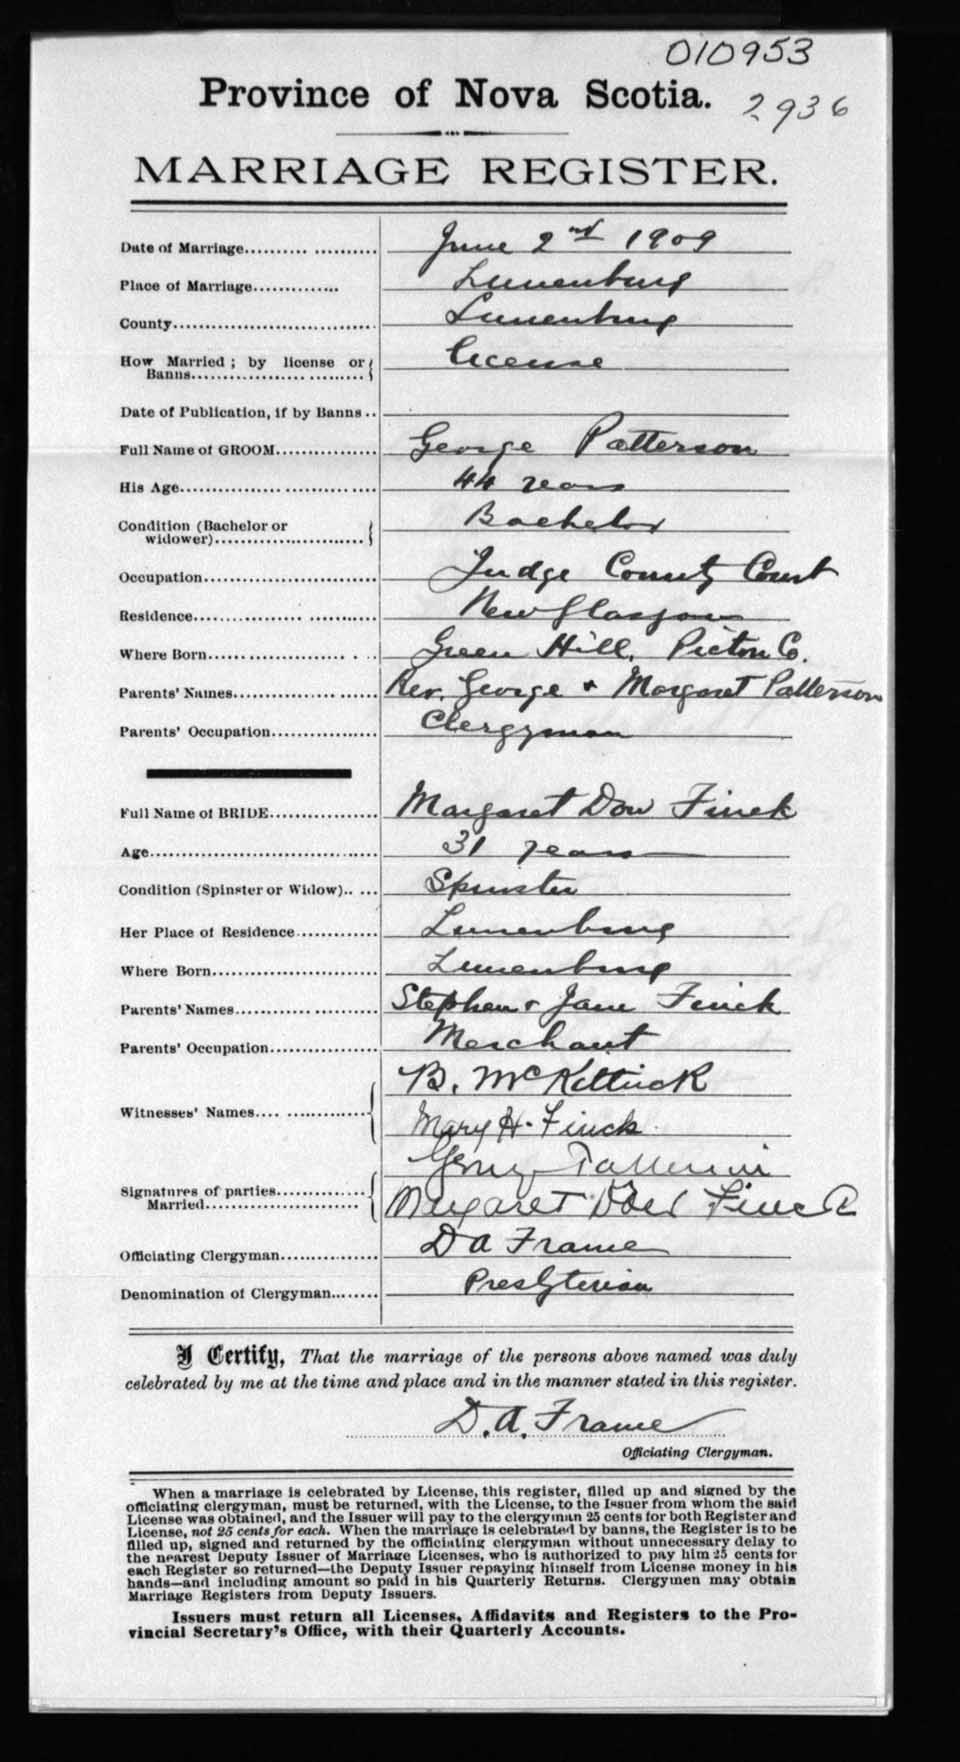 010953
Province of Nova Scotia.
2936
MARRIAGE REGISTER.
Date of Marriage........ June 2nd 1909
Place of Marriage............. Lunenburg
County.............................. Lunenburg
How Married ; by license or Banns........................ License
Date of Publication, if by Banns ..
Full Name of GROOM................ George Patterson
His Age............................... 44 years
Condition (Bachelor or widower)....................... Bachelor
Occupation........................... Judge County Court
Residence............................ New Glasgow
Where Born......................... Green Hill, Pictou Co.
Parents' Names..................... Rev. George + Margaret Patterson
Parents' Occupation................ Clergyman
Full Name of BRIDE................ Margaret Dow Finck
Age..................................... 31 years
Condition (Spinster or Widow)..... Spinster
Her Place of Residence............. Lunenburg
Where Born........................... Lunenburg
Parents' Names..................... Stephen + Jane Finck
Parents' Occupation................ Merchant
B. McKittrick
Witnesses' Names..................
Mary H. Finck
George Patterson
Signatures of parties Married........................
Margaret Dow Finck
Officiating Clergyman............... D A Frame
Denomination of Clergyman........ Presbyterian
I Certify, That the marriage of the persons above named was duly
celebrated by me at the time and place and in the manner stated in this register.
D. A. Frame
Officiating Clergyman.
When a marriage is celebrated by License, this register, filled up and signed by the
officiating clergyman, must be returned, with the License, to the Issuer from whom the said
License was obtained, and the Issuer will pay to the clergyman 25 cents for both Register and
License, not 25 cents for each. When the marriage is celebrated by banns, the Register is to be
filled up, signed and returned by the officiating clergyman without unnecessary delay to
the nearest Deputy Issuer of Marriage Licenses, who is authorized to pay him 25 cents for
each Register so returned—the Deputy Issuer repaying himself from License money in his
hands—and including amount so paid in his Quarterly Returns. Clergymen may obtain
Marriage Registers from Deputy Issuers.
Issuers must return all Licenses, Affidavits and Registers to the Pro-
vincial Secretary's Office, with their Quarterly Accounts.